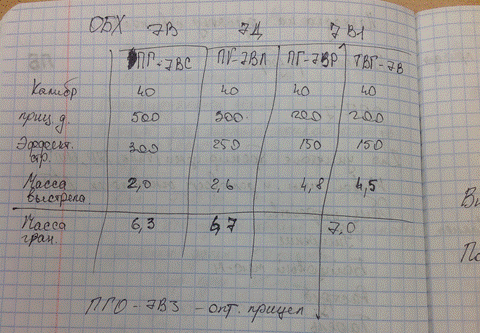 ОБХ 7В 7Д 7В1
ПГ-7ВС ПГ-7ВЛ ПГ-7ВР ТБГ-7В
Калибр 40 40 40 40
приц. д. 500 300 200 200
Эффект. стр. 300 250 150 150
Масса выстрела 2,0 2,6 4,8 4,5
Масса гран. 6,3 6,7 7,0
ПГО-7В3 - опт. прицел